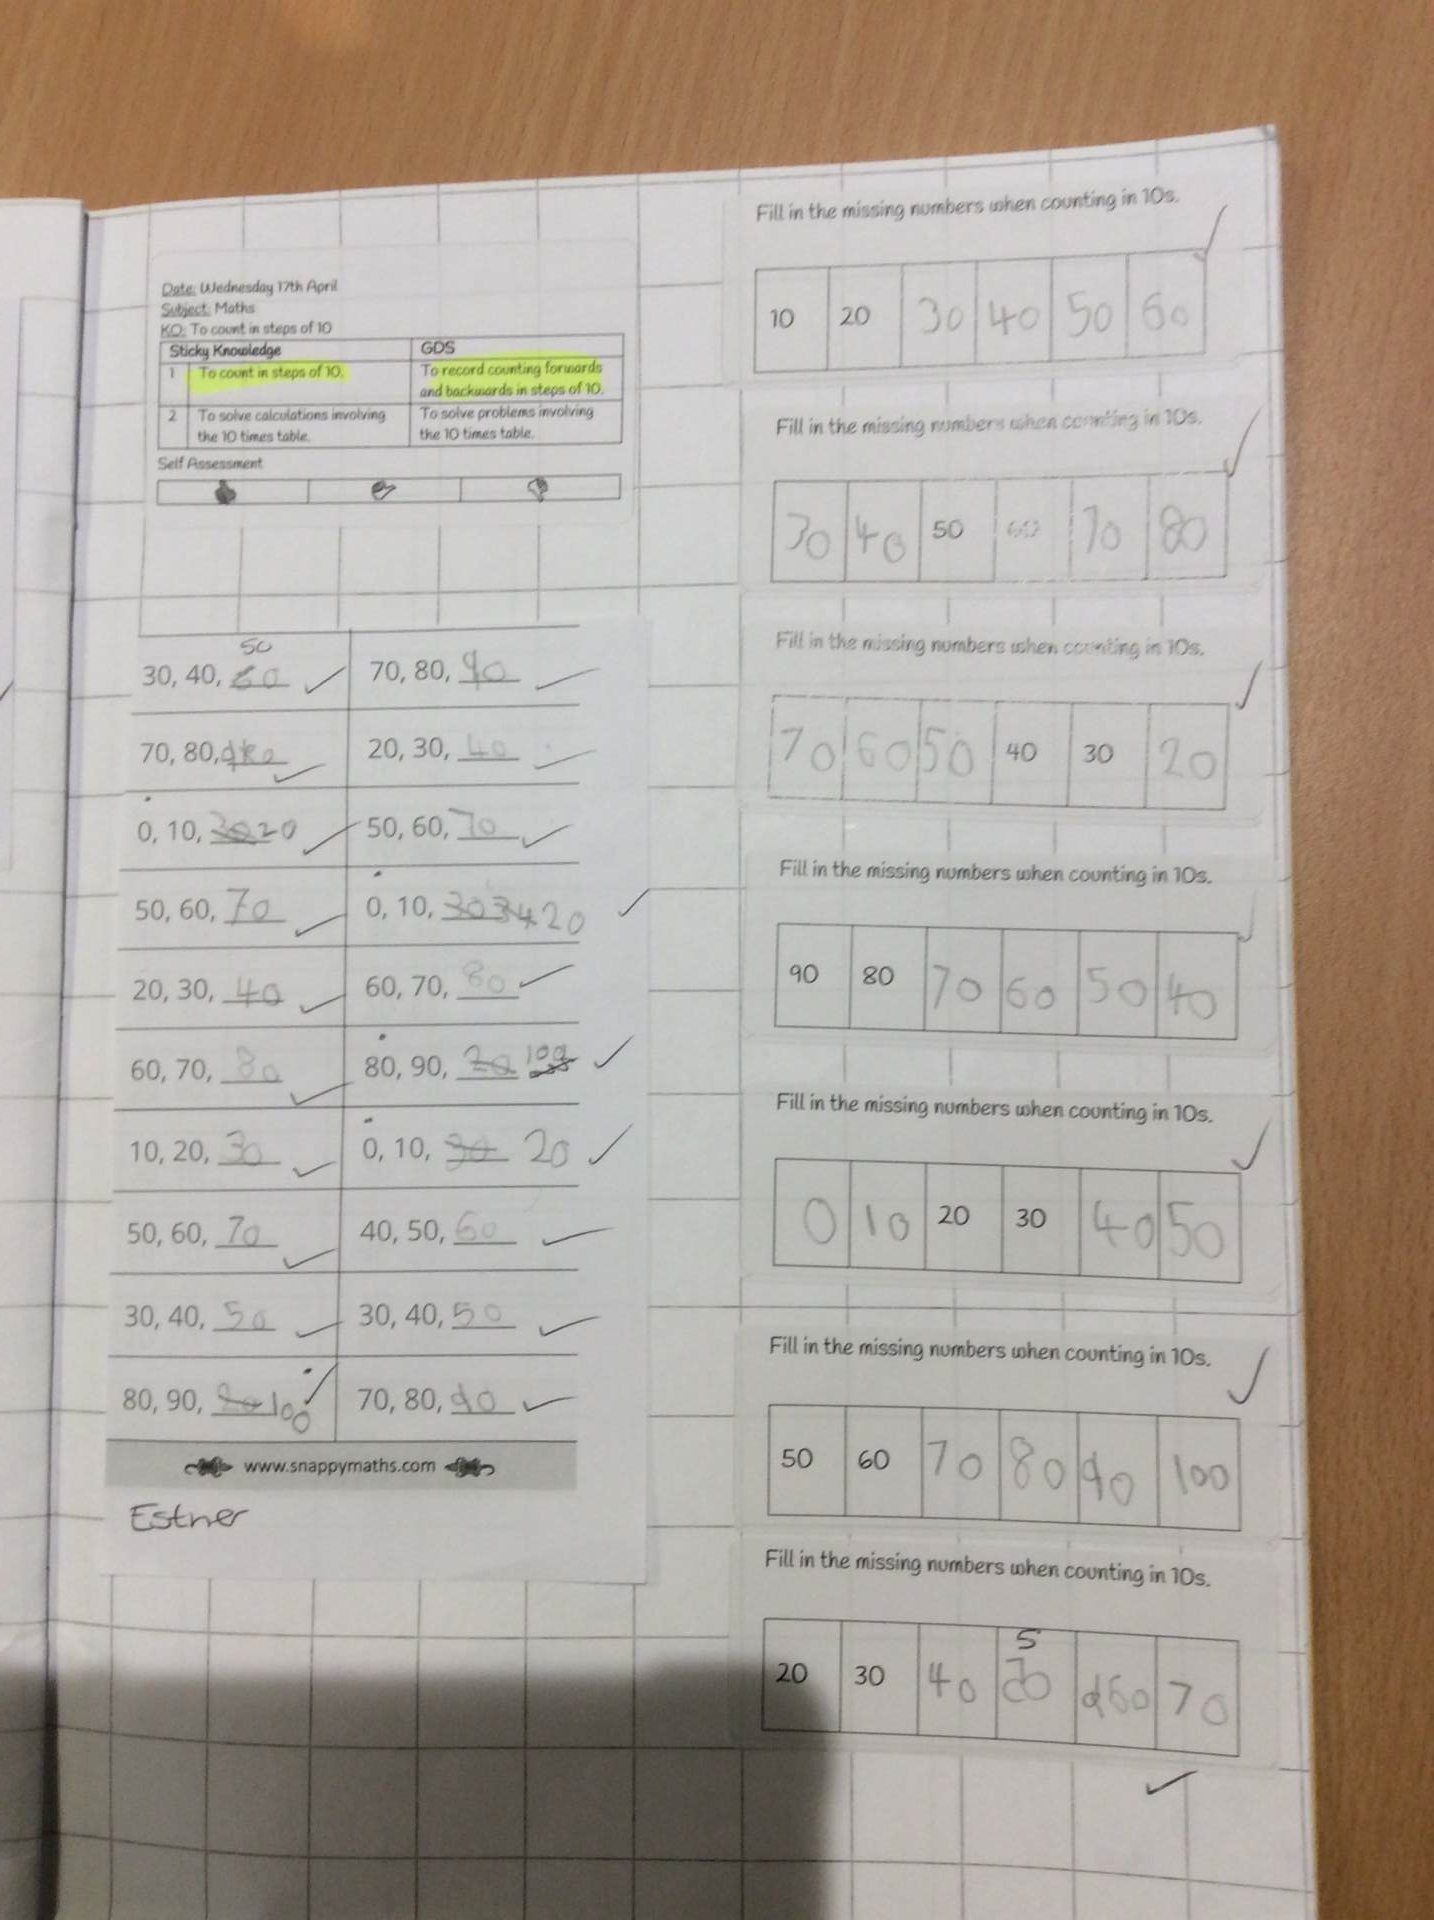 Date: Wednesday 17th April
Subject: Maths
KO: To count in steps of 10
Sticky Knowledge GDS
1 To count in steps of 10. To record counting forwards and backwards in steps of 10.
2 To solve calculations involving the 10 times table. To solve problems involving the 10 times table.
Self Assessment
50
30, 40, 60 70, 80, 90
70, 80, 20, 30, 40
0, 10, 30 20 50, 60, 70
50, 60, 70 0, 10, 30 20
20, 30, 40 60, 70, 80
60, 70, 80 80, 90, 20 100
10, 20, 30 0, 10, 30 20
50, 60, 70 40, 50, 60
30, 40, 50 30, 40, 50
80, 90, 100 70, 80, 90
www.snappymaths.com
Estner
Fill in the missing numbers when counting in 10s.
10 20 30 40 50 60
Fill in the missing numbers when counting in 10s.
30 40 50 60 70 80
Fill in the missing numbers when counting in 10s.
70 60 50 40 30 20
Fill in the missing numbers when counting in 10s.
90 80 70 60 50 40
Fill in the missing numbers when counting in 10s.
0 10 20 30 40 50
Fill in the missing numbers when counting in 10s.
50 60 70 80 90 100
Fill in the missing numbers when counting in 10s.
5
20 30 40 60 70